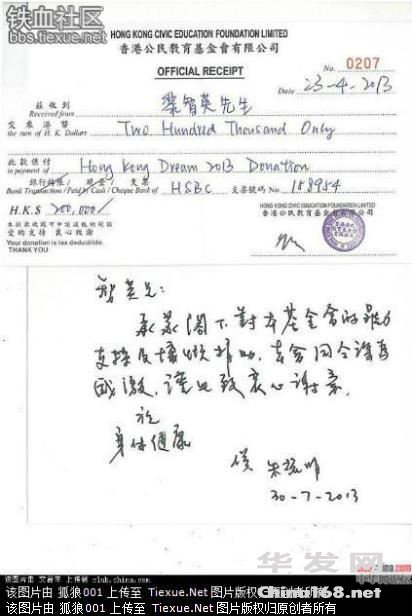 铁血社区
bbs.tiexue.net
HONG KONG CIVIC EDUCATION FOUNDATION LIMITED
香港公民教育基金會有限公司
OFFICIAL RECEIPT
No. 0207
Date 23-4-2013
茲收到
Received from
黎智英先生
交來港幣
the sum of H.K. Dollars
Two Hundred Thousand Only
此款係付
in payment of
Hong Kong Dream 2013 Donation
銀行轉賬 / 現金 / 支票
Bank Transaction / Paid by Cash / Cheque Bank of
HSBC
支票號碼 No. 158954
H.K.$ 200,000/
HONG KONG CIVIC EDUCATION FOUNDATION LIMITED
香港公民教育基金會有限公司
愛的支持 衷心致謝
Your donation is tax deductible.
THANK YOU
智英兄:
承蒙閣下對本基金會的鼎力
支持及慷慨捐助,吾會同仝謹
感激,謹此致衷心謝意。
祝
身体健康
朱耀明
30-7-2013
华发网
China168.net
club.china.com
该图片由 孤狼001 上传至 Tiexue.Net 图片版权归原创者所有
该图片由 孤狼001 上传至 Tiexue.Net 图片版权归原创者所有